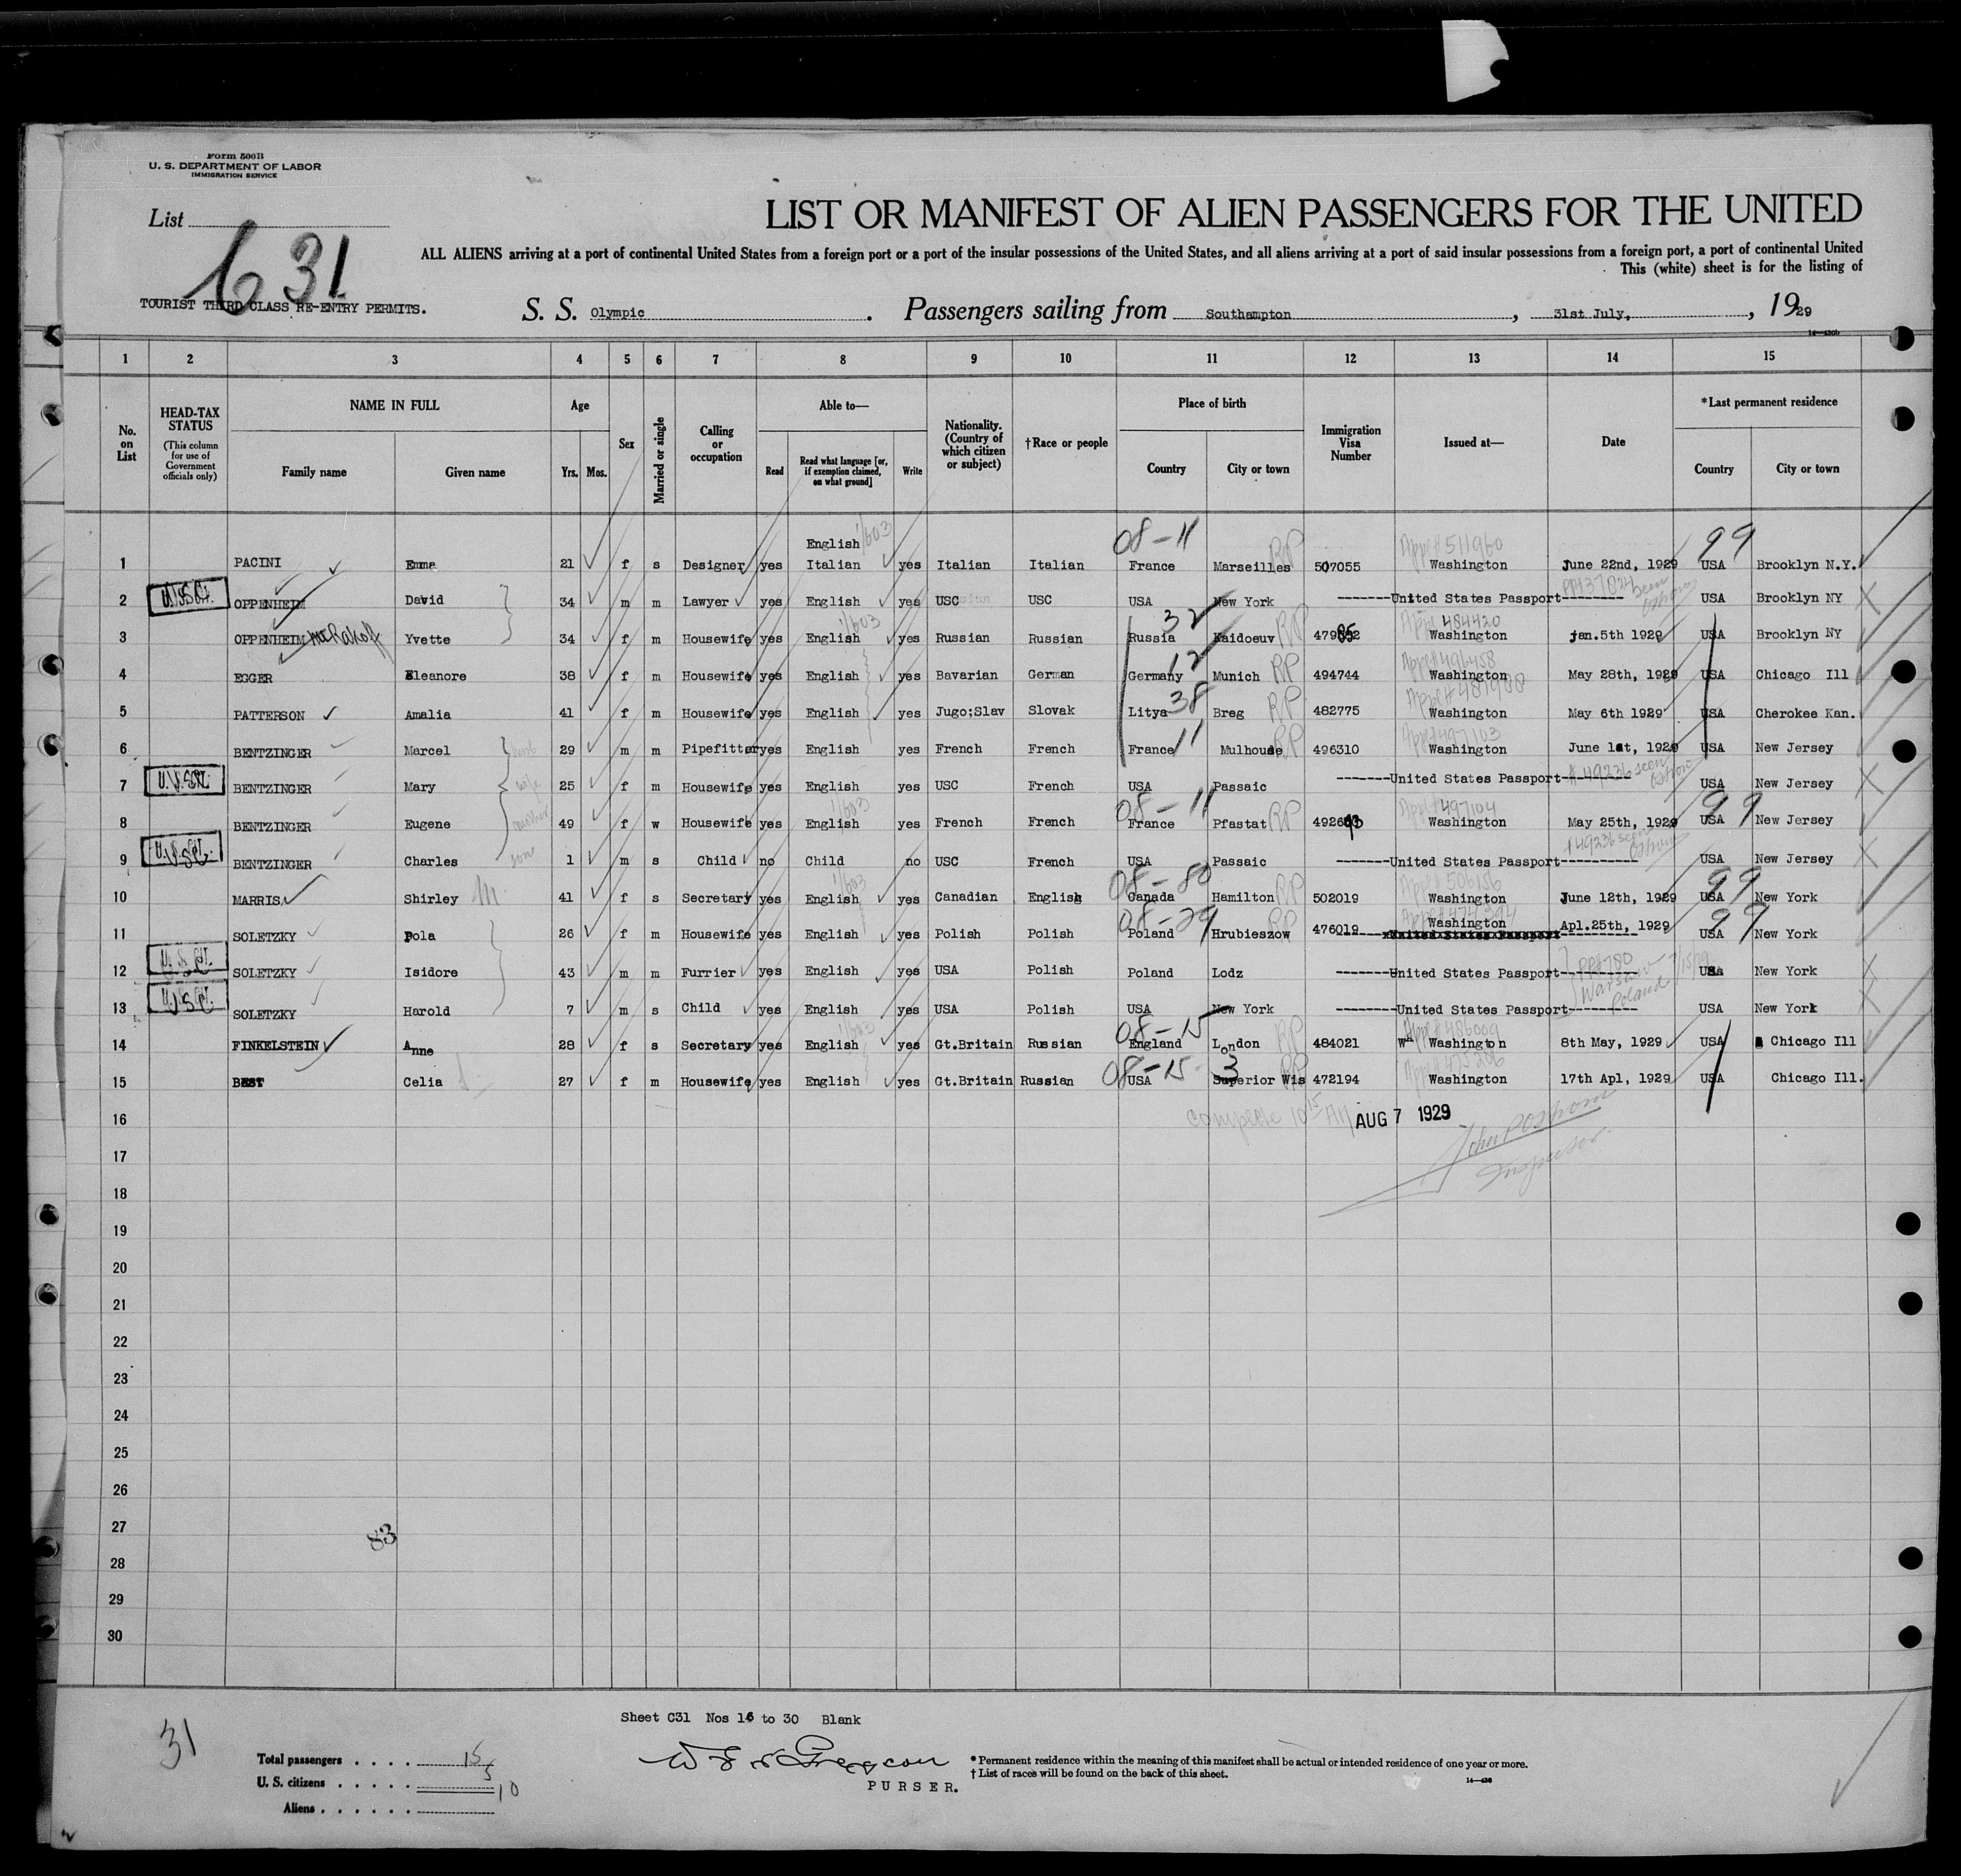 Form 500B
U. S. DEPARTMENT OF LABOR
IMMIGRATION SERVICE
List
C 31
LIST OR MANIFEST OF ALIEN PASSENGERS FOR THE UNITED
ALL ALIENS arriving at a port of continental United States from a foreign port or a port of the insular possessions of the United States, and all aliens arriving at a port of said insular possessions from a foreign port, a port of continental United
This (white) sheet is for the listing of
TOURIST THIRD CLASS RE-ENTRY PERMITS. S. S. Olympic . Passengers sailing from Southampton , 31st July, , 1929
1 2 3 4 5 6 7 8 9 10 11 12 13 14 15
No. on List
HEAD-TAX STATUS (This column for use of Government officials only)
NAME IN FULL Family name Given name
Age Yrs. Mos.
Sex
Married or single
Calling or occupation
Able to— Read Read what language [or, if exemption claimed, on what ground] Write
Nationality. (Country of which citizen or subject)
†Race or people
Place of birth Country City or town
Immigration Visa Number
Issued at—
Date
*Last permanent residence Country City or town
English 08-11 99
1 PACINI Emma 21 f s Designer yes Italian yes Italian Italian France Marseilles RP 507055 Washington June 22nd, 1929 USA Brooklyn N.Y.
2 OPPENHEIM David 34 m m Lawyer yes English yes USC USC USA New York -------United States Passport-------- USA Brooklyn NY
3 OPPENHEIM Yvette 34 f m Housewife yes English yes Russian Russian Russia 32 Kaidoeuv RP Washington jan.5th 1929 USA Brooklyn NY
4 EGGER Eleanore 38 f m Housewife yes English yes Bavarian German Germany 12 Munich RP 494744 Washington May 28th, 1929 USA Chicago Ill
5 PATTERSON Amalia 41 f m Housewife yes English yes Jugo;Slav Slovak Litya 38 Breg RP 482775 Washington May 6th 1929 USA Cherokee Kan.
6 BENTZINGER Marcel 29 m m Pipefitter yes English yes French French France 11 Mulhouse RP 496310 Washington June 1st, 1929 USA New Jersey
7 U.S.C. BENTZINGER Mary 25 f m Housewife yes English yes USC French USA Passaic -------United States Passport-------- USA New Jersey
8 BENTZINGER Eugene 49 f w Housewife yes English yes French French 08-11 France Pfastat RP Washington May 25th, 1929 99 USA New Jersey
9 BENTZINGER Charles 1 m s Child no Child no USC French USA Passaic -------United States Passport---------- USA New Jersey
10 MARRIS Shirley 41 f s Secretary yes English yes Canadian English 08-80 Canada Hamilton RP 502019 Washington June 12th, 1929 99 USA New York
11 SOLETZKY Pola 26 f m Housewife yes English yes Polish Polish 08-29 Poland Hrubieszow RP 476019 Washington Apl.25th, 1929 99 USA New York
12 SOLETZKY Isidore 43 m m Furrier yes English yes USA Polish Poland Lodz --------United States Passport---------- USA New York
13 SOLETZKY Harold 7 m s Child yes English yes USA Polish USA New York --------United States Passport---------- USA New York
14 FINKELSTEIN Anne 28 f s Secretary yes English yes Gt.Britain Russian 08-15 England London RP 484021 Washington 8th May, 1929 USA Chicago Ill
15 BEST Celia 27 f m Housewife yes English yes Gt.Britain Russian 08-15 USA 3 Superior Wis 472194 Washington 17th Apl, 1929 USA Chicago Ill.
16 AUG 7 1929
17 Inspector.
18
19
20
21
22
23
24
25
26
27
83
28
29
30
Sheet C31 Nos 16 to 30 Blank
31
Total passengers . . . . 15
U. S. citizens . . . . . 5
Aliens . . . . . . 10
PURSER.
* Permanent residence within the meaning of this manifest shall be actual or intended residence of one year or more.
† List of races will be found on the back of this sheet.